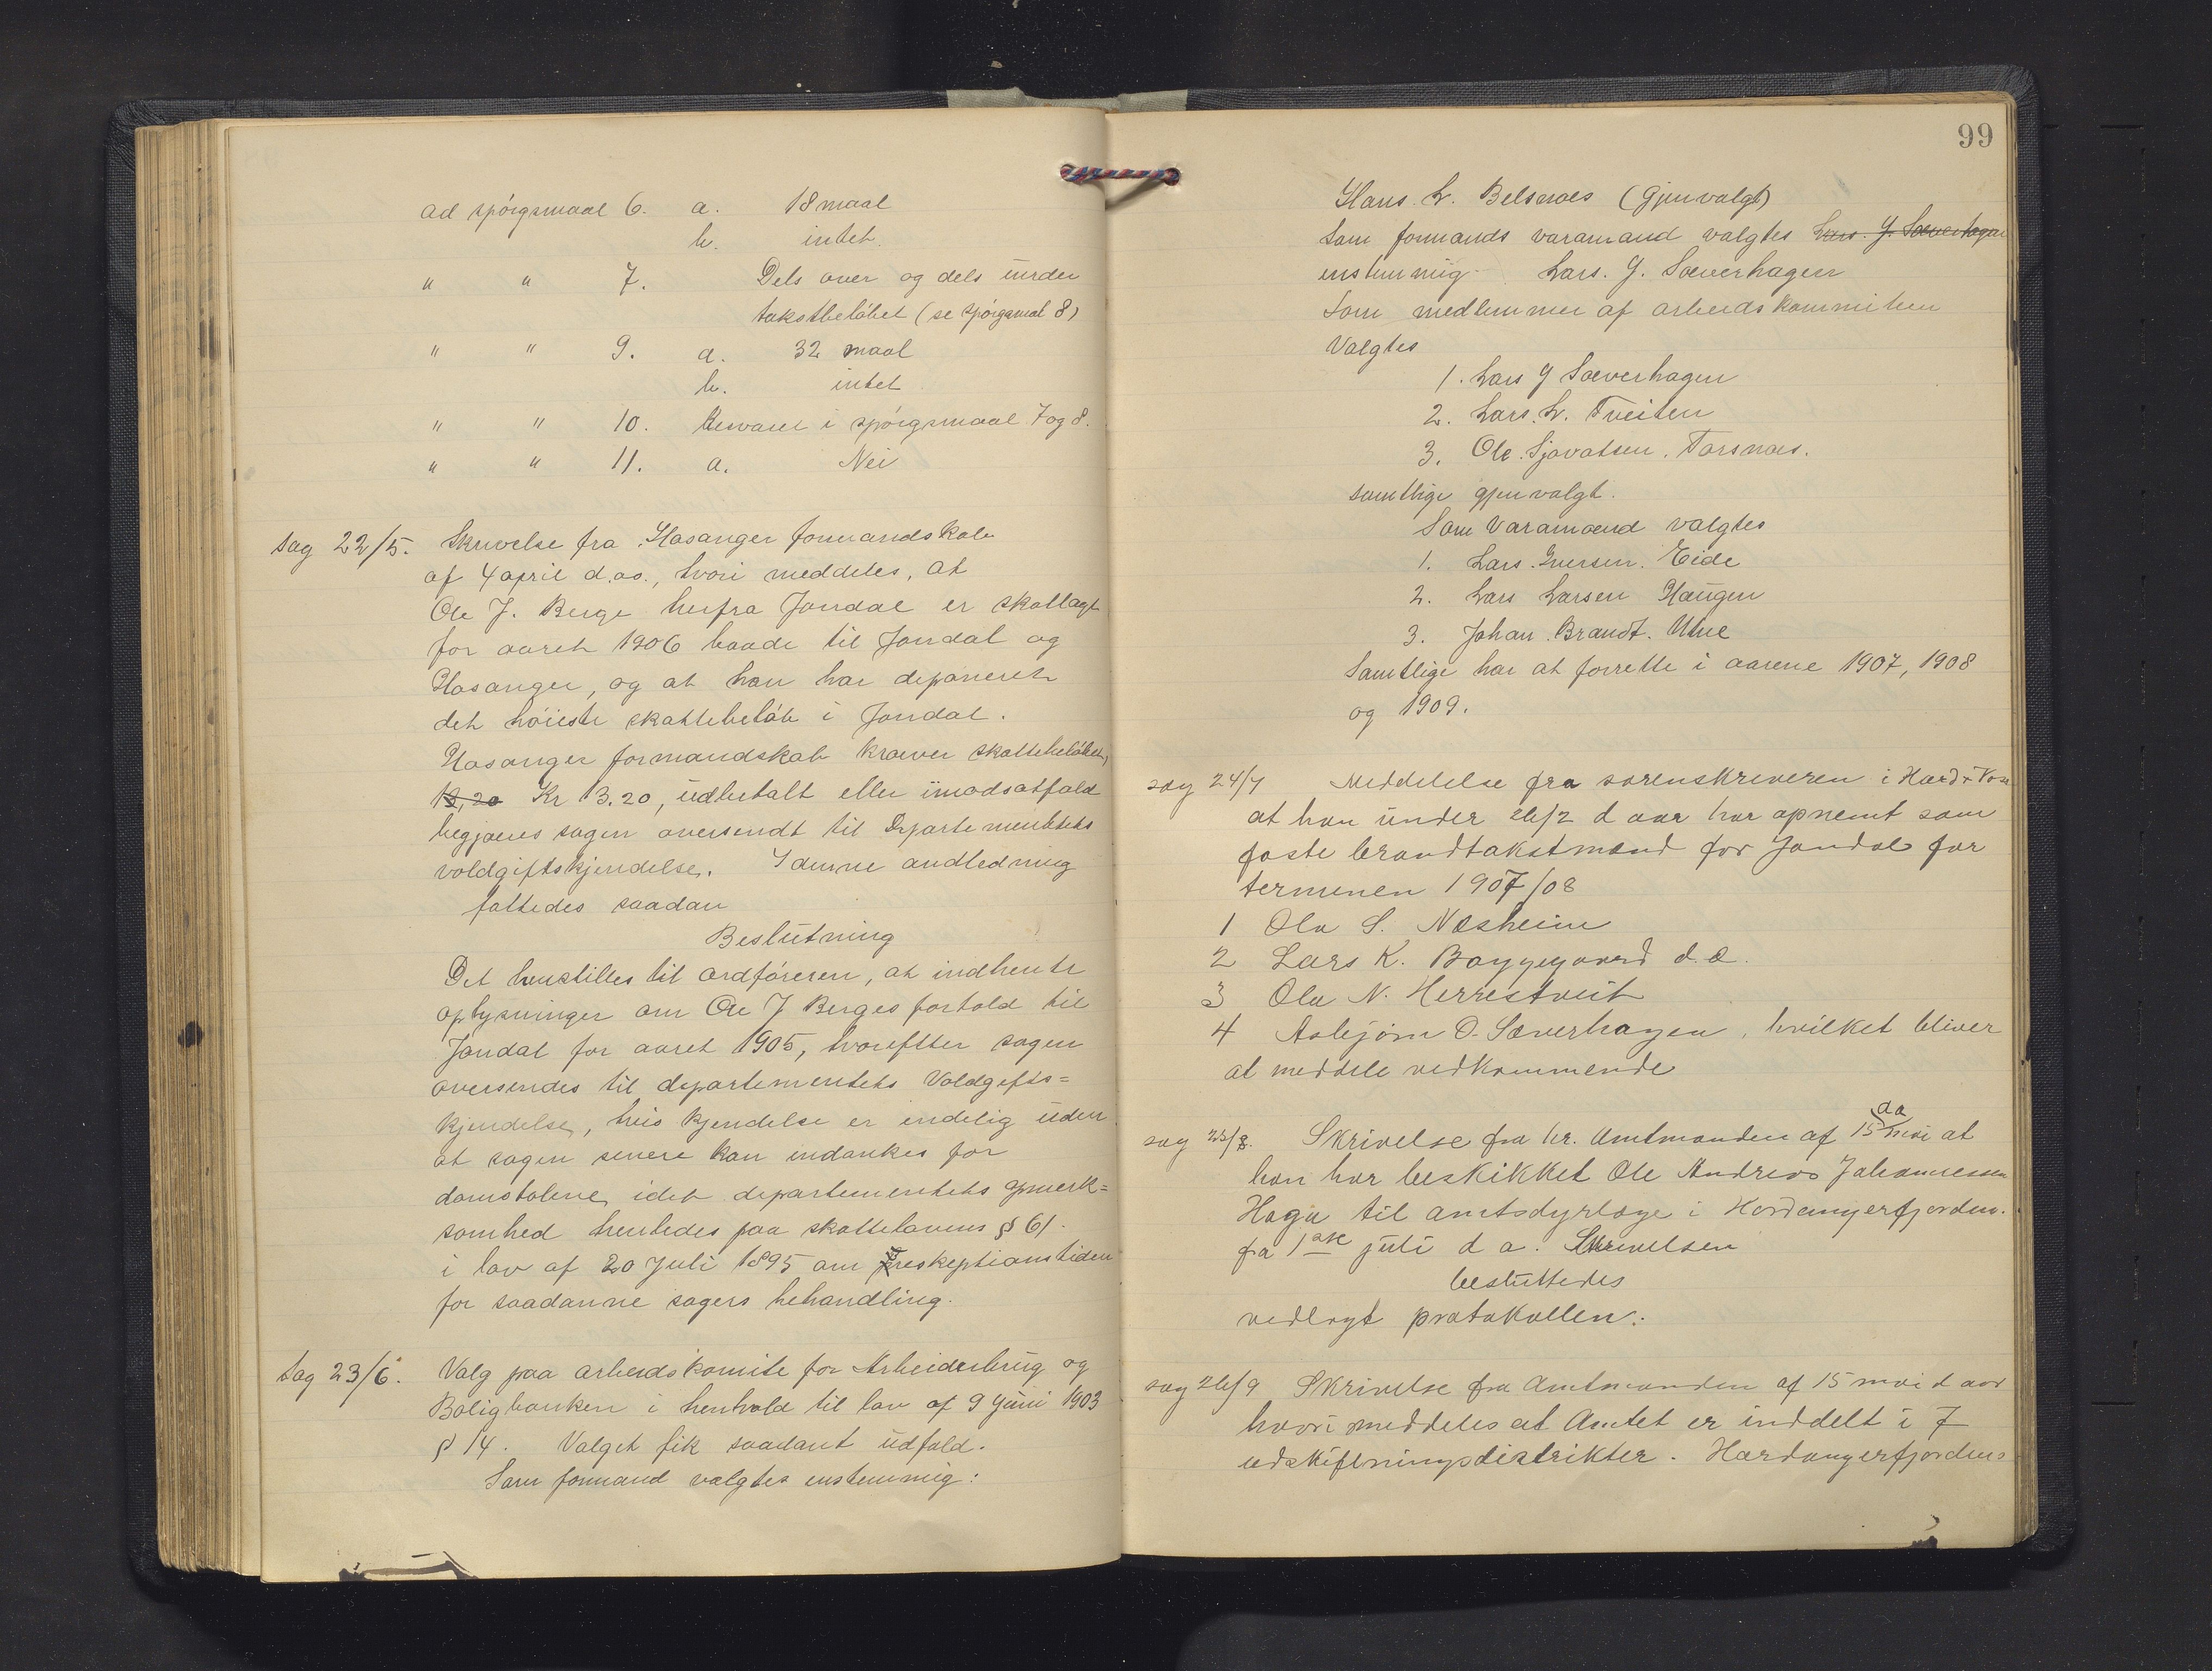 ad spørgsmaal 6. a. 18 maal
b. intet.
" " 7. Dels over og dels under
takstbeløbet (se spørgsmal 8)
" " 9. a. 32 maal
b. intet
" " 10. Besvaret i spørgsmaal 7 og 8.
" " 11. a. Nei
Sag 22/5. Skrivelse fra Hosanger formandskab
af 4 april d.ao., hvori meddeles, at
Ole J. Berge herfra Jondal er skatlagt
for aaret 1906 baade til Jondal og
Hosanger, og at han har deponeret
det høieste skattebeløb i Jondal.
Hosanger formandskab kræver skattebeløbet,
13,20 Kr 13.20, udbetalt eller imodsatfald
begjæres sagen oversendt til Departementets
voldgiftskjendelse. I denne andledning
fattedes saadan
Beslutning
Det henstilles til ordføreren, at indhente
oplysninger om Ole J Berges forhold til
Jondal for aaret 1905, hvorefter sagen
oversendes til departementets Voldgifts=
kjendelse, hvis kjendelse er endelig uden
at sagen senere kan indankes for
domstolene, idet departementets opmerk=
somhed henledes paa skattelovens § 61.
i lov af 20 Juli 1895 om Preskeptionstiden
for saadanne sagers behandling.
Sag 23/6. Valg paa arbeidskomite for Arbeiderbrug og
Boligbanken i henhold til lov af 9 Juni 1903
§ 14. Valget fik saadant udfald.
Som formand valgtes enstemmig:
99
Hans L. Belsnæs (Gjenvalgt)
Som formands varamand valgtes Lars. J. Sæverhagen
enstemmig Lars. J. Sæverhagen
Som medlemmer af arbeidskommiteen
Valgtes
1. Lars J Sæverhagen
2. Lars. L. Tveiten
3. Ole. Sjovatsen. Torsnæs.
samtlige gjenvalgt.
Som Varamænd valgtes
1. Lars. Iversen. Eide
2. Lars Larsen Haugen
3. Johan. Brandt. Utne
Samtlige har at forrette i aarene 1907, 1908
og 1909.
sag 24/7 Meddelelse fra sorenskriveren i Hard & Vos
at han under 26/2 d aar har opnemt som
faste brandtakstmænd for Jondal for
termenen 1907/08
1 Ola S. Næsheim
2 Lars K. Boggegaard d.æ.
3 Ola N. Herrestveit
4 Asbjørn O. Sæverhagen, hvilket bliver
at meddele vedkommende
sag 25/8. Skrivelse fra hr. Amtmanden af 15 mai da at
han har beskikket Ole Andreas Johannessen
Haga til amtsdyrlæge i Hardangerfjorden.
fra 1ste juli d a. Skrivelsen
besluttedes
vedlagt protokollen.
sag 26/9 Skrivelse fra Amtmanden af 15 mai d aar
hvori meddeles at Amtet er inddelt i 7
udskiftningsdistrikter. Hardangerfjordens